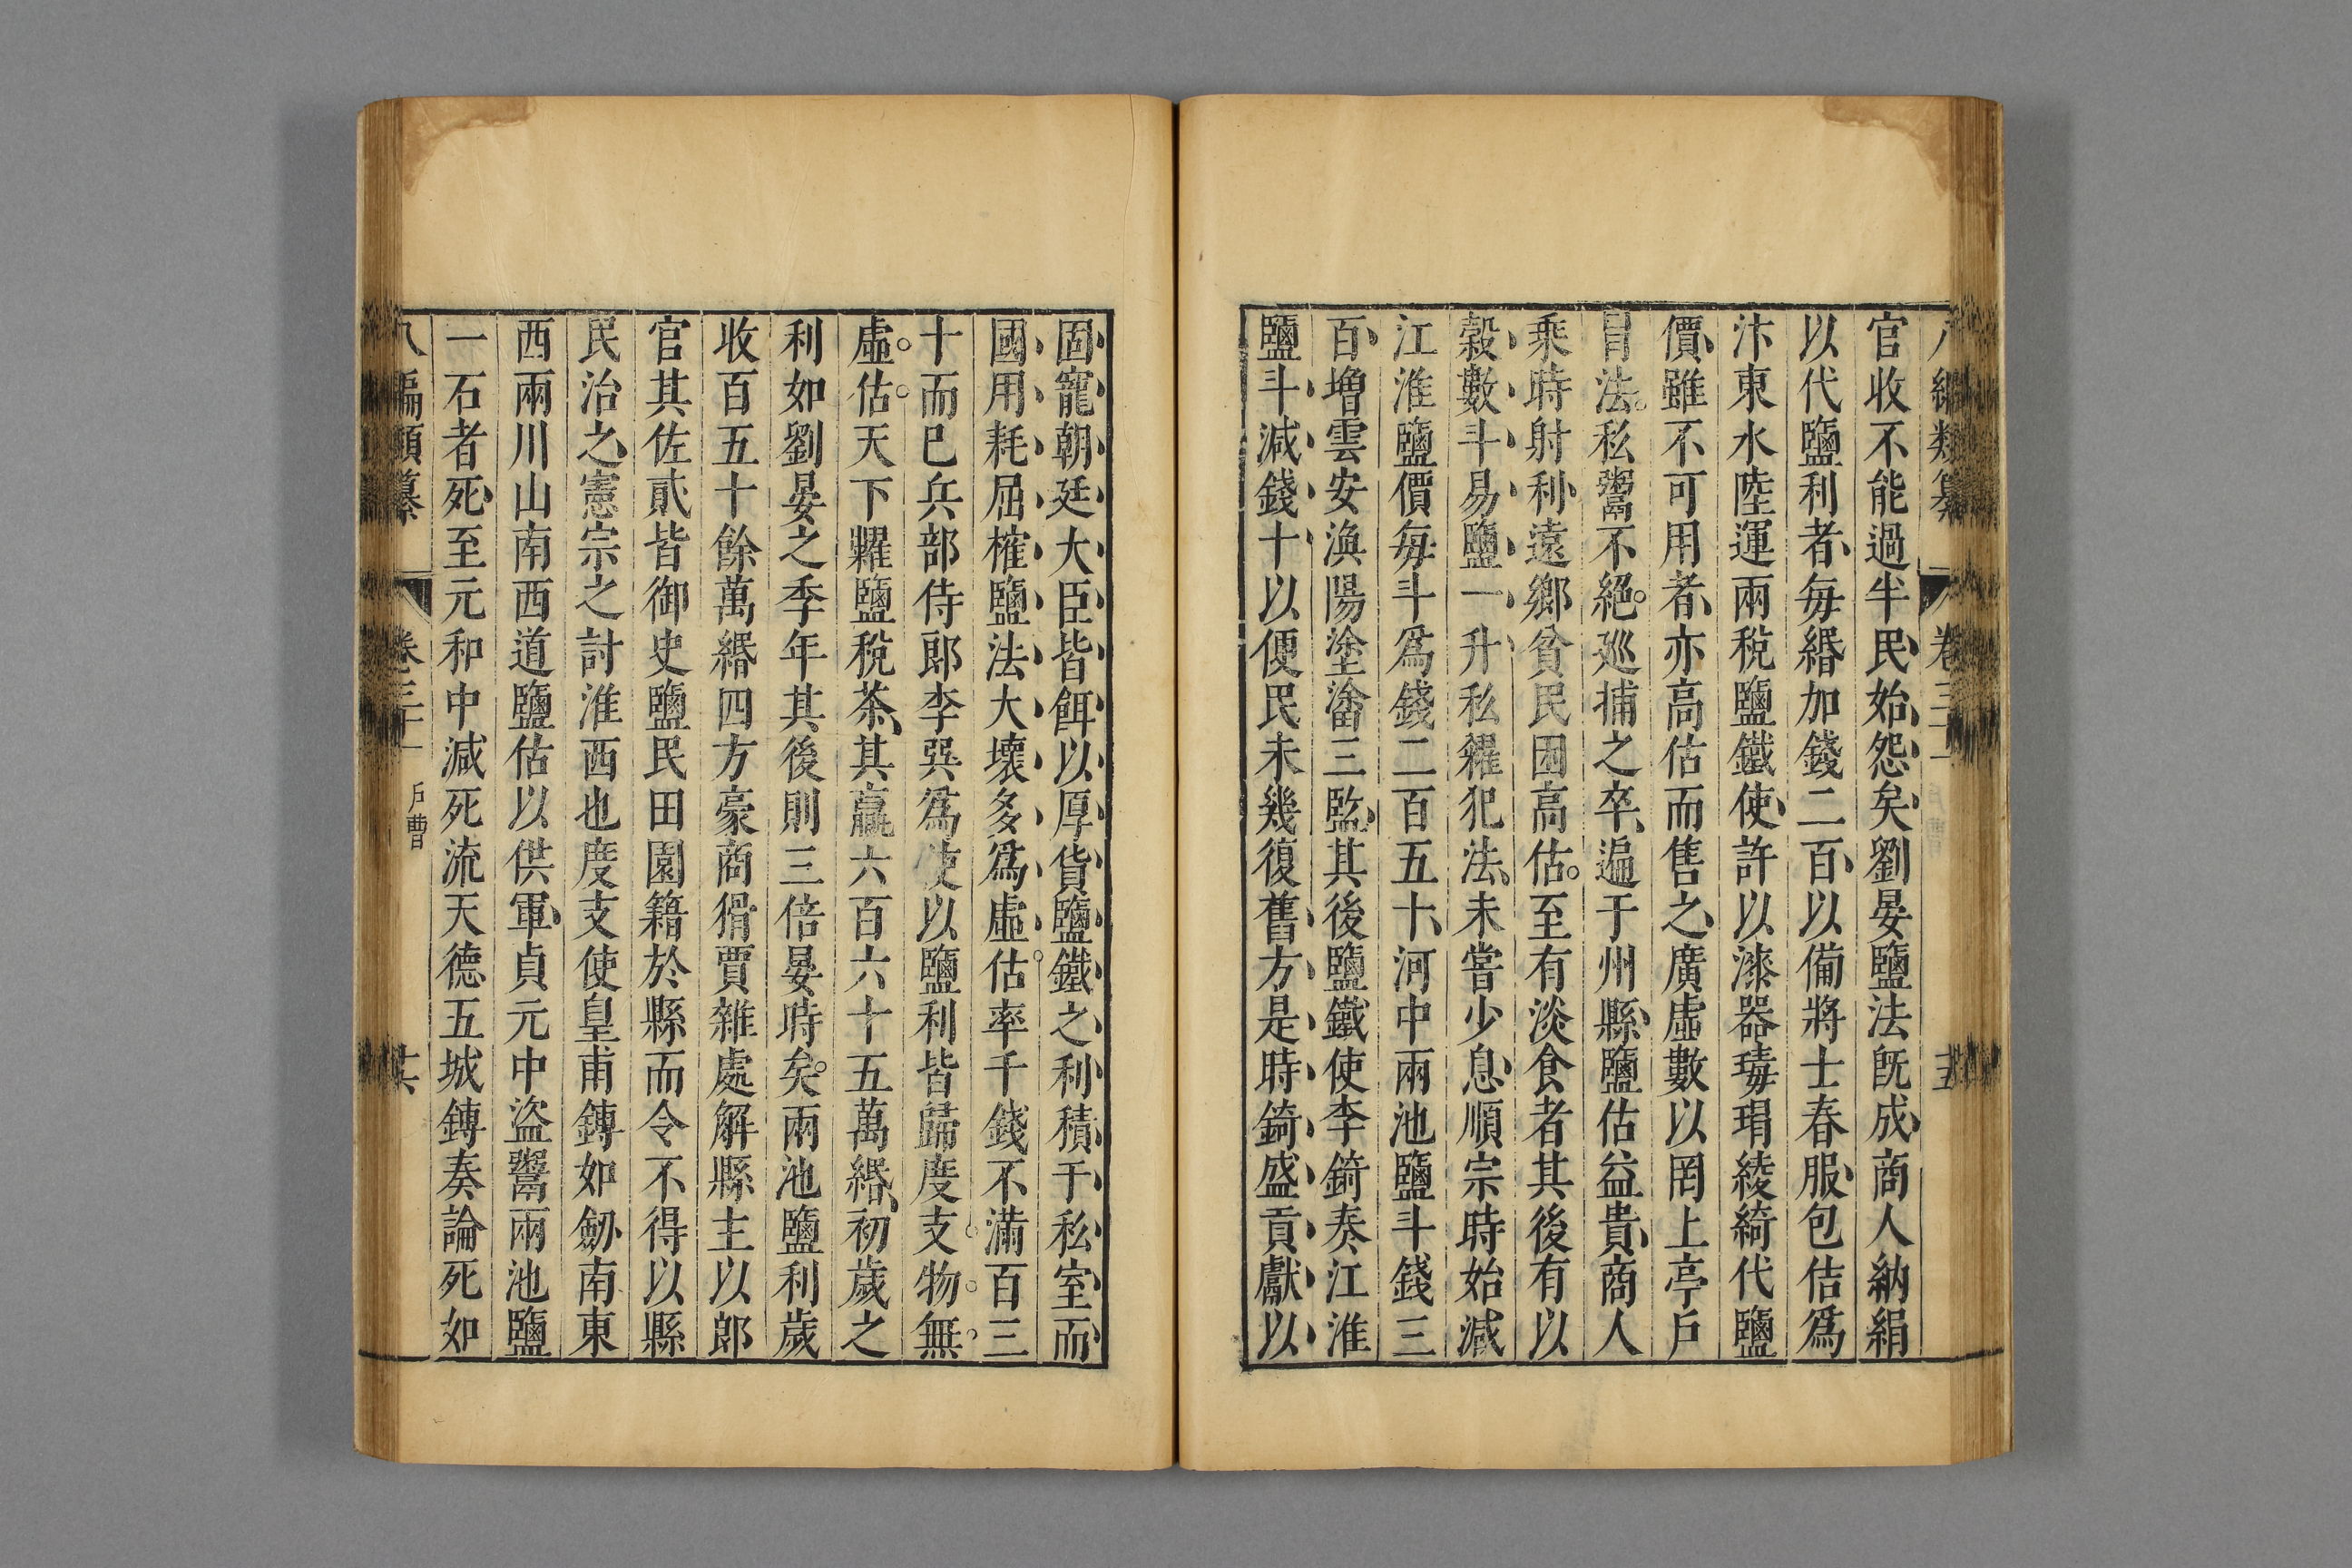 官收不能過半民始怨矣劉晏鹽法旣成商人納絹
以代鹽利者毎緡加錢二百以備將士春服包佶爲
汴東水陸運兩稅鹽鐵使許以漆器瑇瑁綾綺代鹽
價雖不可用者亦高估而售之廣虛數以罔上亭戶
冒法私鬻不絕巡捕之卒遍于州縣鹽估益貴商人
乘時射利遠鄉貧民困高估至有淡食者其後有以
穀數斗易鹽一升私糴犯法未嘗少息順宗時始減
江淮鹽價毎斗爲錢二百五十河中兩池鹽斗錢三
百增雲安渙陽塗㵵三監其後鹽鐵使李錡奏江淮
鹽斗減錢十以便民未幾復舊方是時錡盛貢獻以
固寵朝廷大臣皆餌以厚貨鹽鐵之利積于私室而
國用耗屈榷鹽法大壞多爲虛估率千錢不滿百三
十而已兵部侍郎李巽爲使以鹽利皆歸度支物無
虛估天下糶鹽稅茶其贏六百六十五萬緡初歲之
利如劉晏之季年其後則三倍晏時矣兩池鹽利歲
收百五十餘萬緡四方豪商猾賈雜處解縣主以郎
官其佐貳皆御史鹽民田園籍於縣而令不得以縣
民治之憲宗之討淮西也度支使皇甫鎛加劒南東
西兩川山南西道鹽估以供軍貞元中盜鬻兩池鹽
一石者死至元和中減死流天德五城鎛奏論死如
八編類纂
卷三十一
戶曹